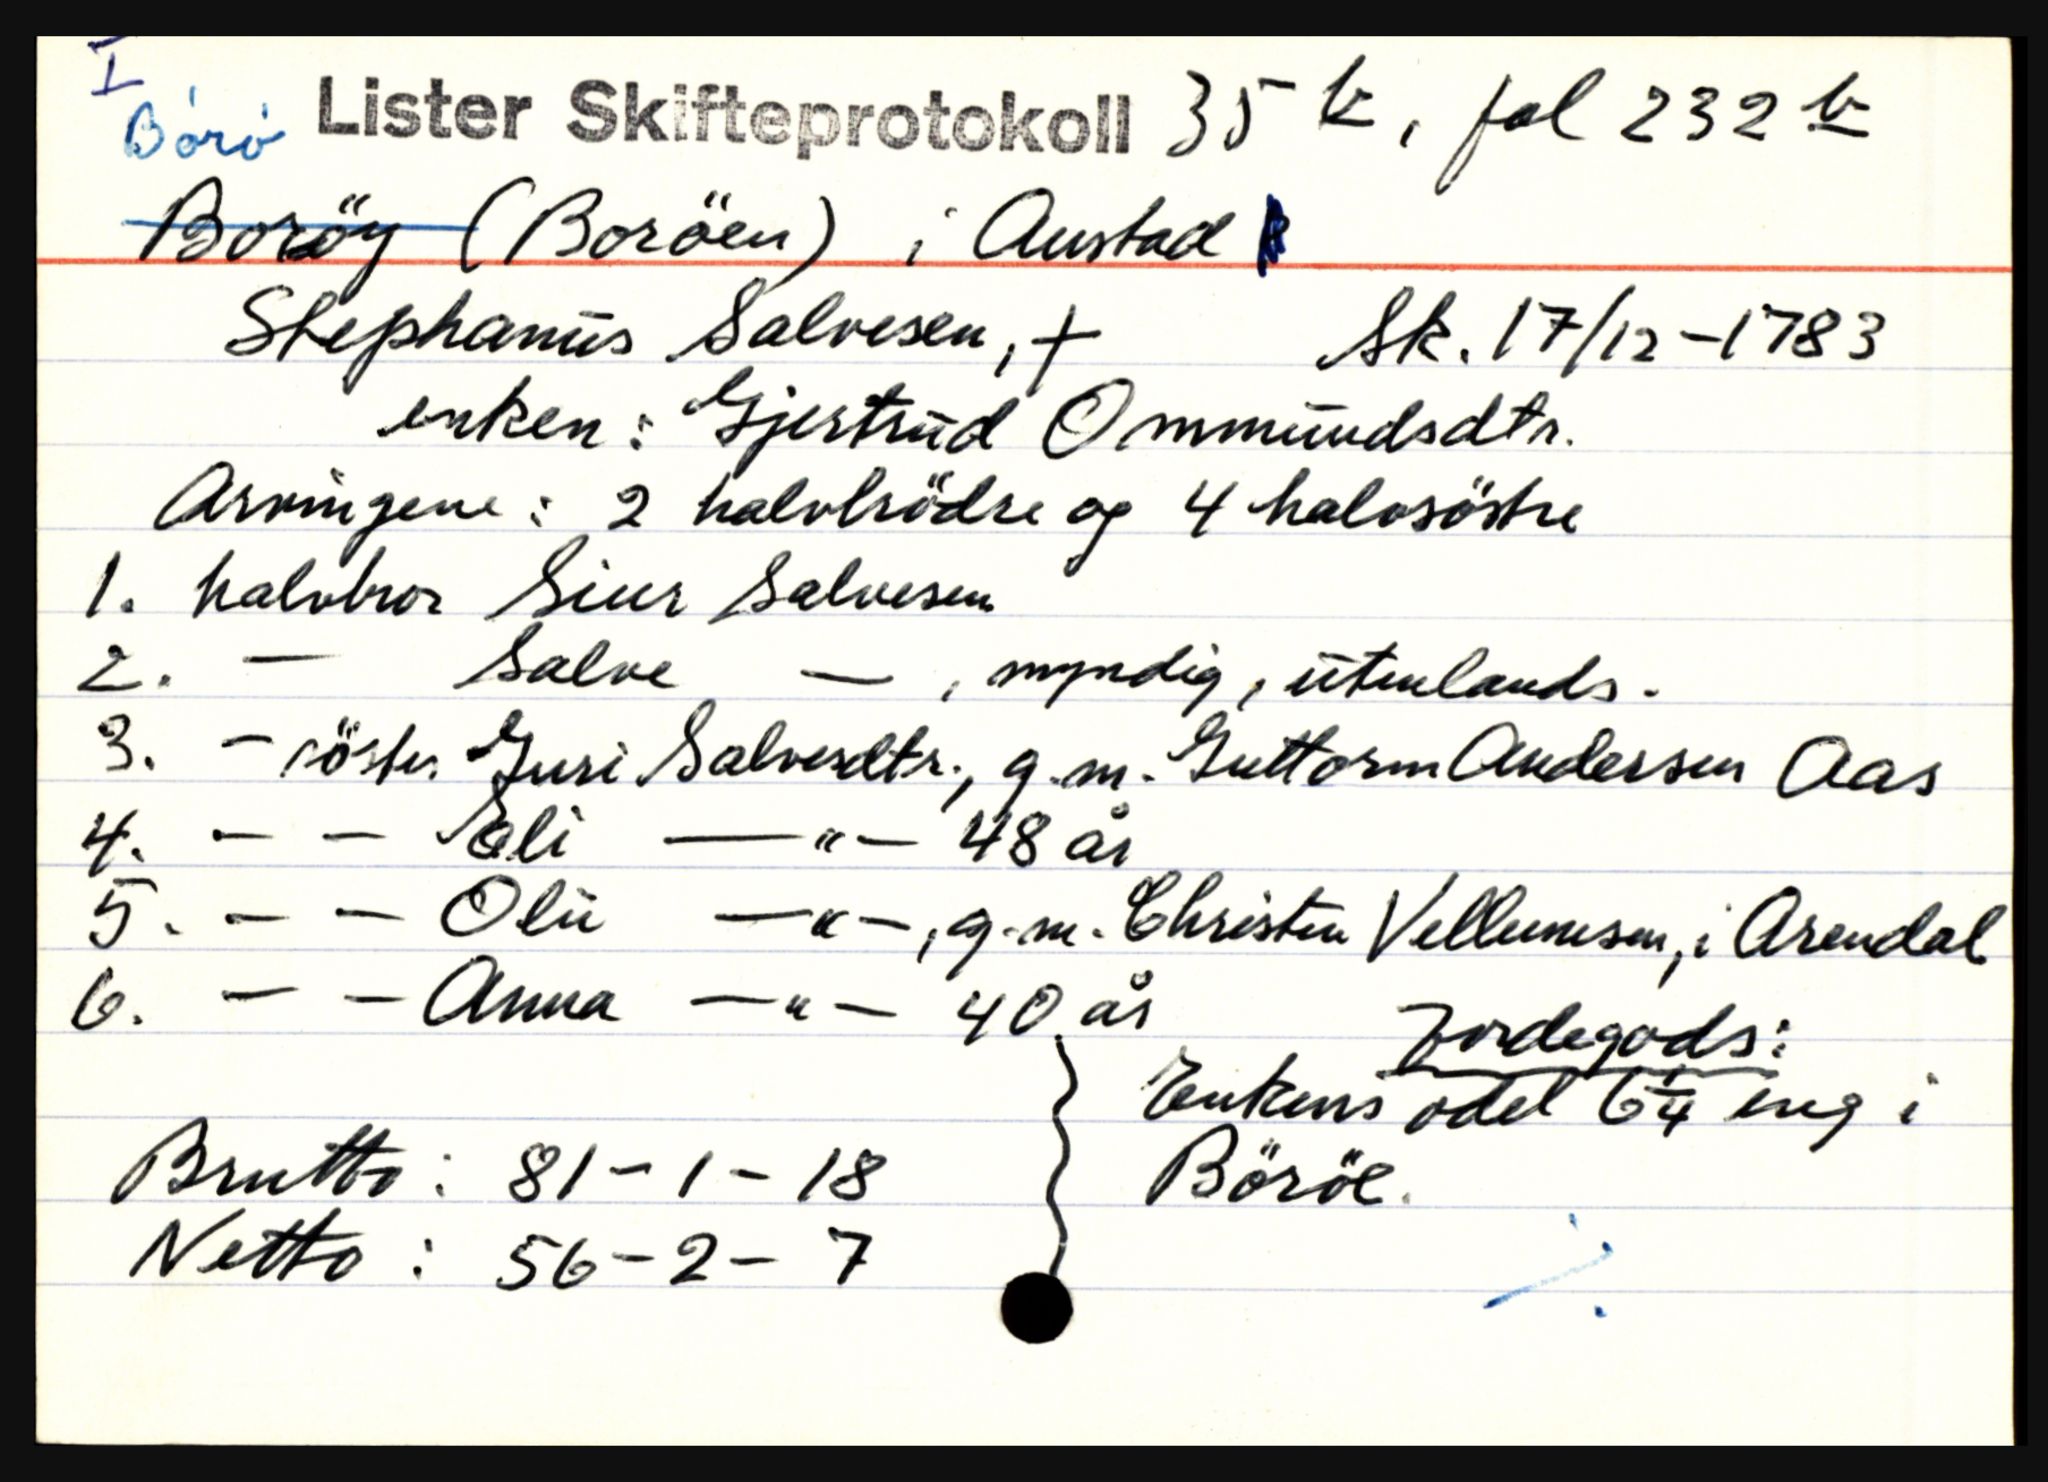 I
Børø Lister Skifteprotokoll 35 b, fol 232 b
Boröy (Boröen) i Austad
Stephanus Salvesen, + Sk. 17/12-1783
enken: Gjertrud Ommundsdtr.
Arvingene: 2 halvbrödre og 4 halvsöstre
1. halvbror Siur Salvesen
2. — Salve — , myndig, utenlands.
3. — söster Guri Salvesdtr., g.m. Guttorm Andersen Aas
4. — — Eli —"— 48 år
5. — — Olu —"—, g.m. Christen Vellumsen, i Arendal
6. — — Anna —"— 40 år
Jordegods:
Enkens odel 6 1/4 eng i
Böröe.
Brutto: 81-1-18
Netto: 56-2-7